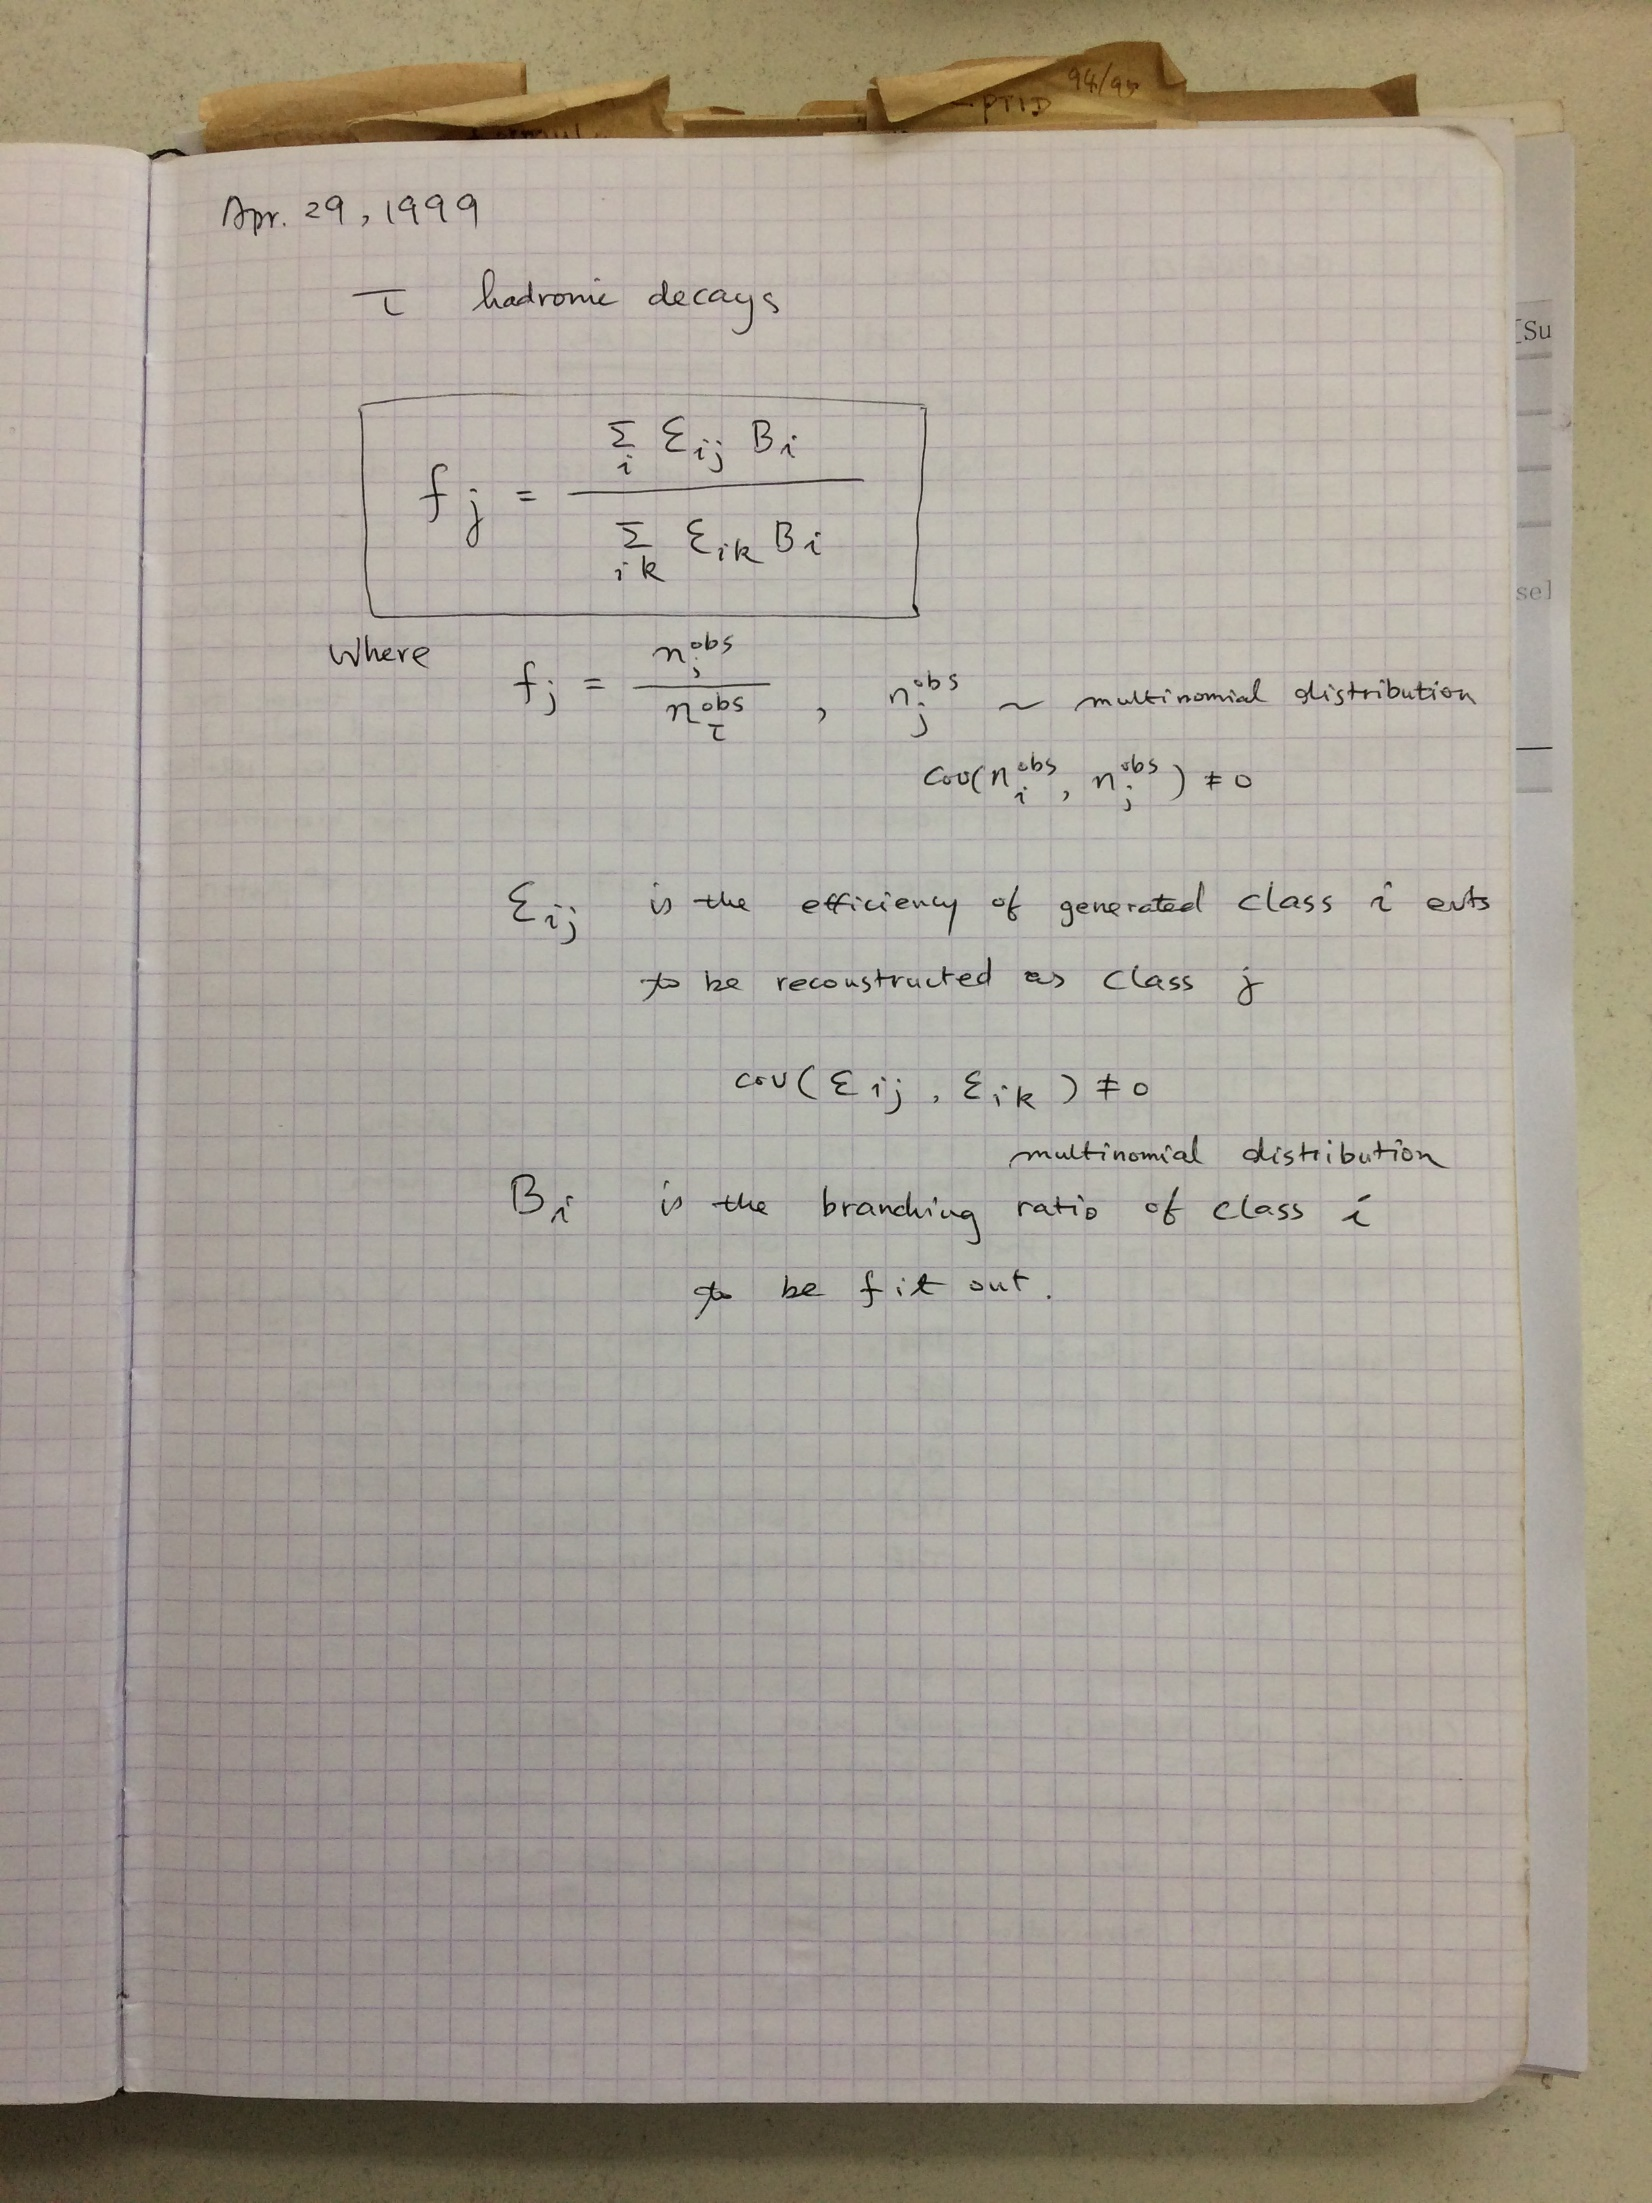 94/95
PTID
Apr. 29, 1999
τ hadronic decays
[Su
f j = Σ i ε ij B i / Σ ik ε ik B i
sel
where f j = n j obs / n τ obs , n j obs ~ multinomial distribution
cov(n i obs , n j obs) ≠ 0
ε ij is the efficiency of generated class i evts
to be reconstructed as class j
cov(ε ij , ε ik) ≠ 0
multinomial distribution
B i is the branching ratio of class i
to be fit out.